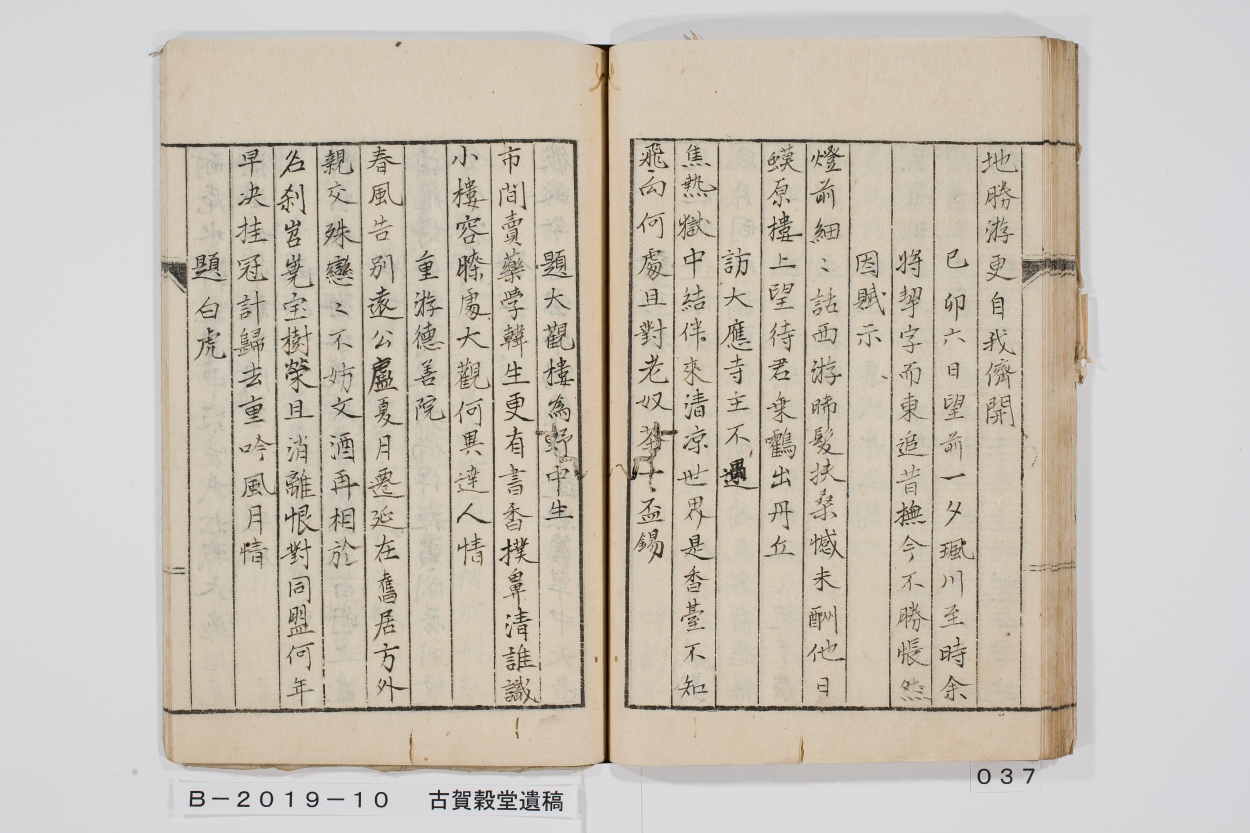 地勝游更自我儕開
己卯六日望前一夕珮川至時余
将挈字而東追昔撫今不勝悵然
因賦示
燈前細〻話西游晞髮扶桑憾未酬他日
蟆原樓上望待君乗鶴出丹丘
訪大應寺主不遇
焦熱獄中結伴来清凉世界是香臺不知
飛向何處且對老奴茶十盃錫
題大觀樓為野中生
市間賣藥学韓生更有書香撲鼻清誰識
小樓容膝處大觀何異達人情
重游德善院
春風告别遠公廬夏月遷延在舊居方外
親交殊戀〻不妨文酒再相於
名刹岧嶤宝樹榮且消離恨對同盟何年
早决挂冠計歸去重吟風月情
題白虎
B－2019－10 古賀穀堂遺稿
037